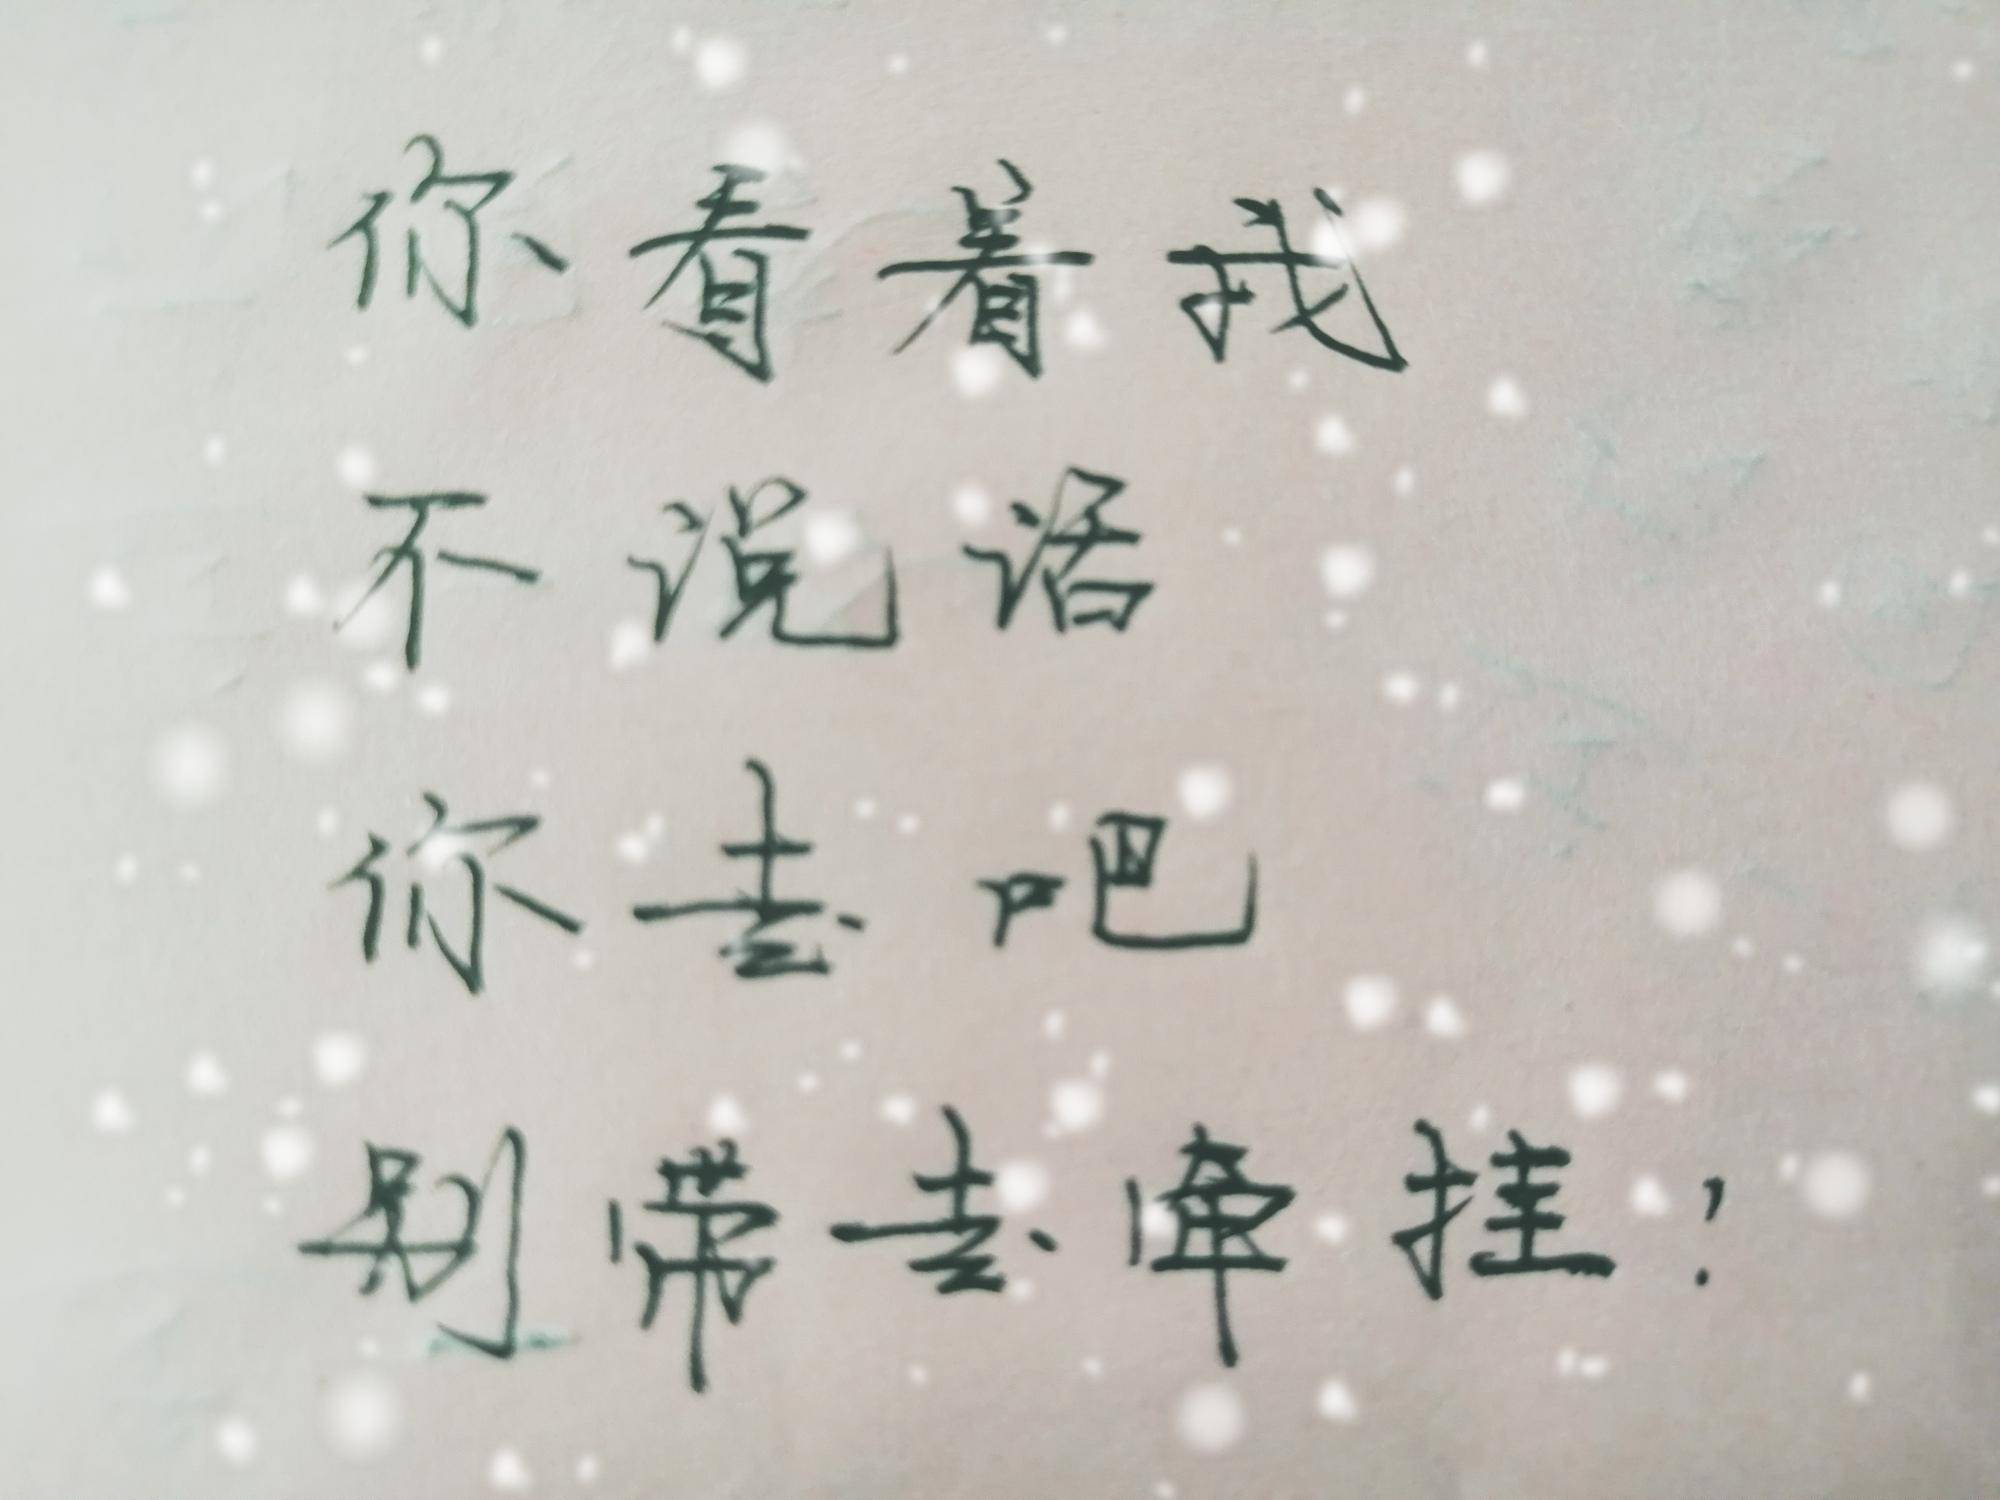 你看着我
不说话
你去吧
别带去牵挂！